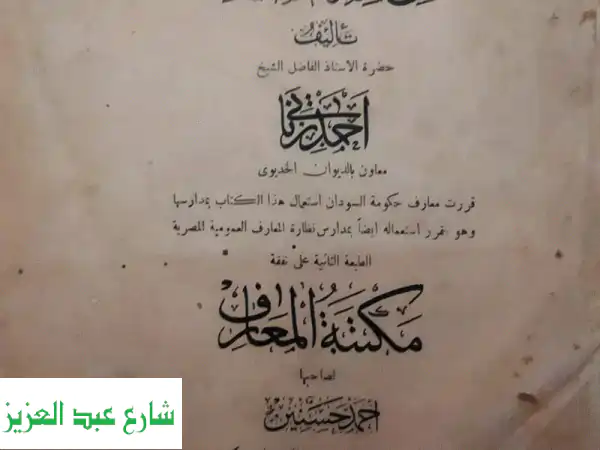 تأليف
حضرة الاستاذ الفاضل الشيخ
احمد زناتي
معاون بالديوان الخديوى
قررت معارف حكومة السودان استعمال هذا الكتاب بمدارسها
وهو مقرر استعماله ايضاً بمدارس نظارة المعارف العمومية المصرية
الطبعة الثانية على نفقة
مكتبة المعارف
لصاحبها
احمد حسنين
شارع عبد العزيز